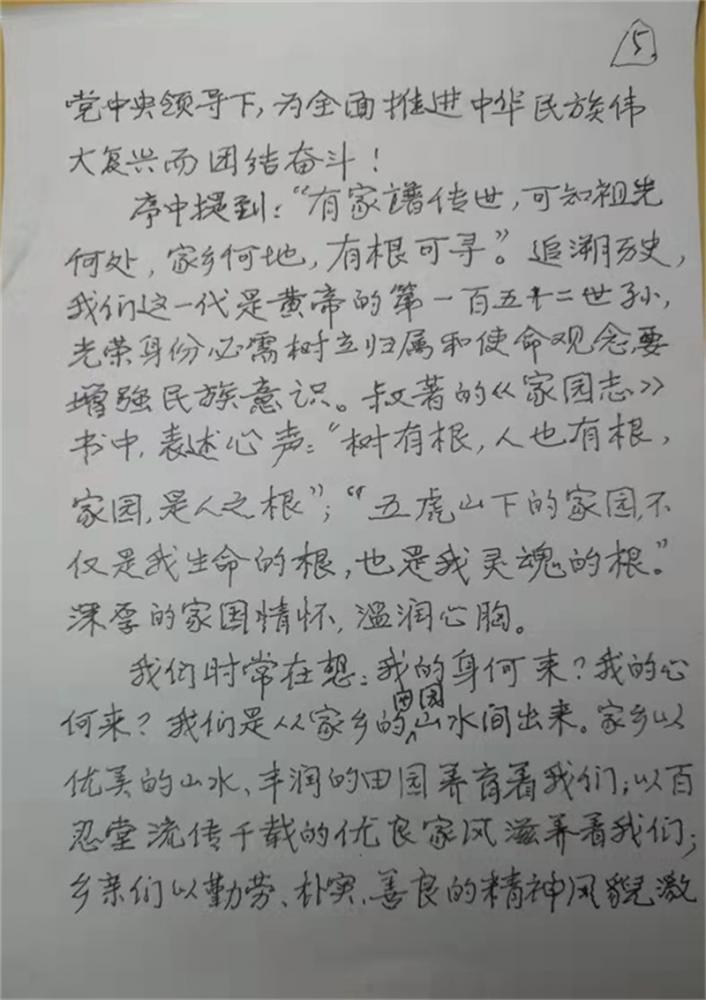 5
党中央领导下,为全面推进中华民族伟
大复兴而团结奋斗!
序中提到:“有家谱传世,可知祖先
何处,家乡何地,有根可寻”。追溯历史,
我们这一代是黄帝的第一百五十二世孙,
光荣身份必需树立归属和使命观念,要
增强民族意识。叔著的《家园志》
书中,表述心声:“树有根,人也有根,
家园,是人之根”;“五虎山下的家园,不
仅是我生命的根,也是我灵魂的根”。
深厚的家国情怀,温润心胸。
我们时常在想:我的身何来?我的心
田园
何来?我们是从家乡的山水间出来。家乡以
优美的山水、丰润的田园养育着我们;以百
忍堂流传千载的优良家风滋养着我们;
乡亲们以勤劳、朴实、善良的精神风貌激